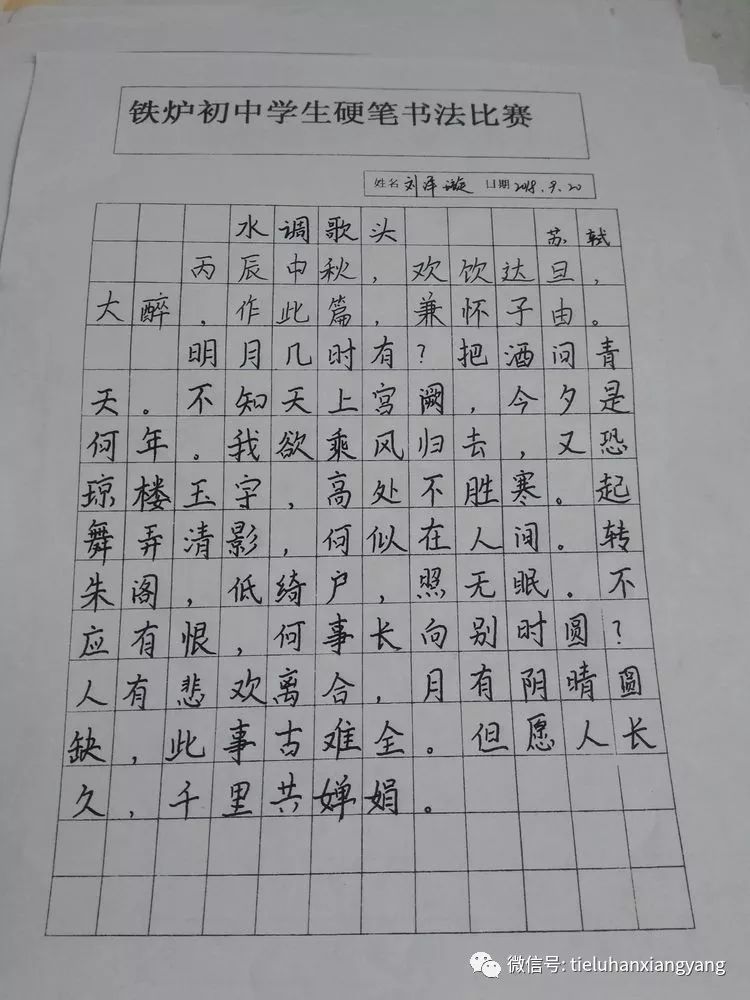 铁炉初中学生硬笔书法比赛
姓名 刘泽璇 日期 2018.9.20
水调歌头 苏轼
丙辰中秋，欢饮达旦，
大醉，作此篇，兼怀子由。
明月几时有？把酒问青
天。不知天上宫阙，今夕是
何年。我欲乘风归去，又恐
琼楼玉宇，高处不胜寒。起
舞弄清影，何似在人间。转
朱阁，低绮户，照无眠。不
应有恨，何事长向别时圆？
人有悲欢离合，月有阴晴圆
缺，此事古难全。但愿人长
久，千里共婵娟。
微信号: tieluhanxiangyang